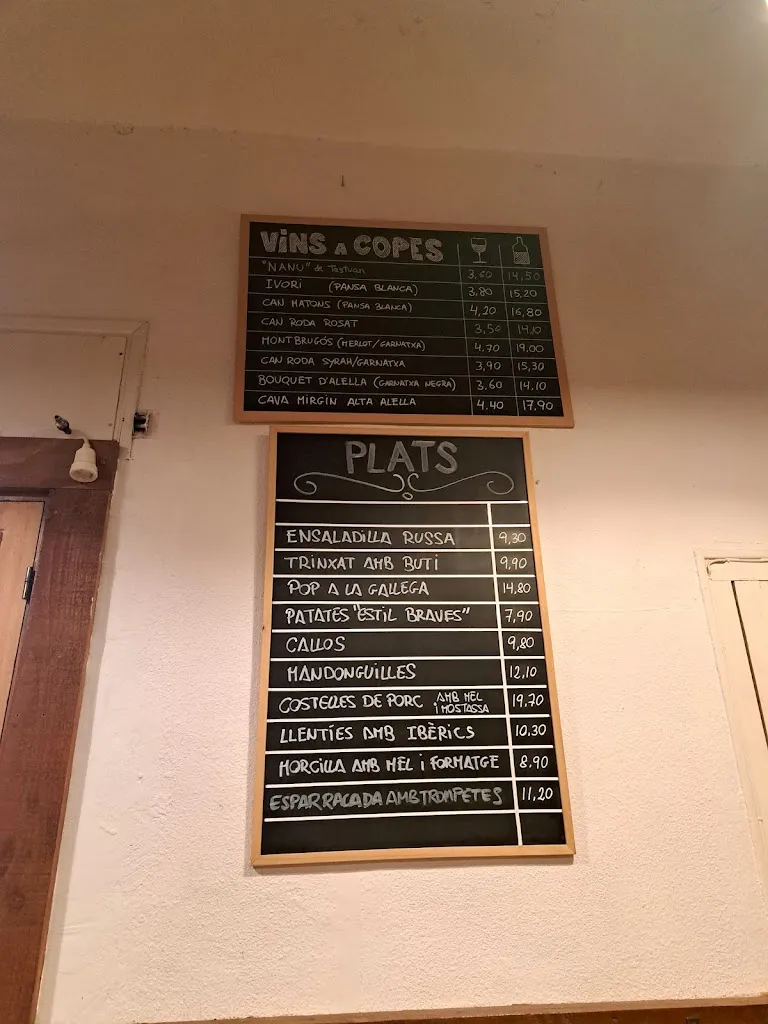 VINS A COPES
"NANU" de Testuan 3,60 14,50
IVORI (PANSA BLANCA) 3,80 15,20
CAN MATONS (PANSA BLANCA) 4,20 16,80
CAN RODA ROSAT 3,50 14,10
MONTBRUGÓS (MERLOT/GARNATXA) 4,70 19,00
CAN RODA SYRAH/GARNATXA 3,90 15,30
BOUQUET D'ALELLA (GARNATXA NEGRA) 3,60 14,10
CAVA MIRGIN ALTA ALELLA 4,40 17,90
PLATS
ENSALADILLA RUSSA 9,30
TRINXAT AMB BUTI 9,90
POP A LA GALLEGA 14,80
PATATES "ESTIL BRAVES" 7,90
CALLOS 9,80
MANDONGUILLES 12,10
COSTELLES DE PORC AMB MEL I MOSTASSA 19,70
LLENTÍES AMB IBÈRICS 10,30
MORCILLA AMB MEL i FORMATGE 8,90
ESPARRACADA AMB TROMPETES 11,20